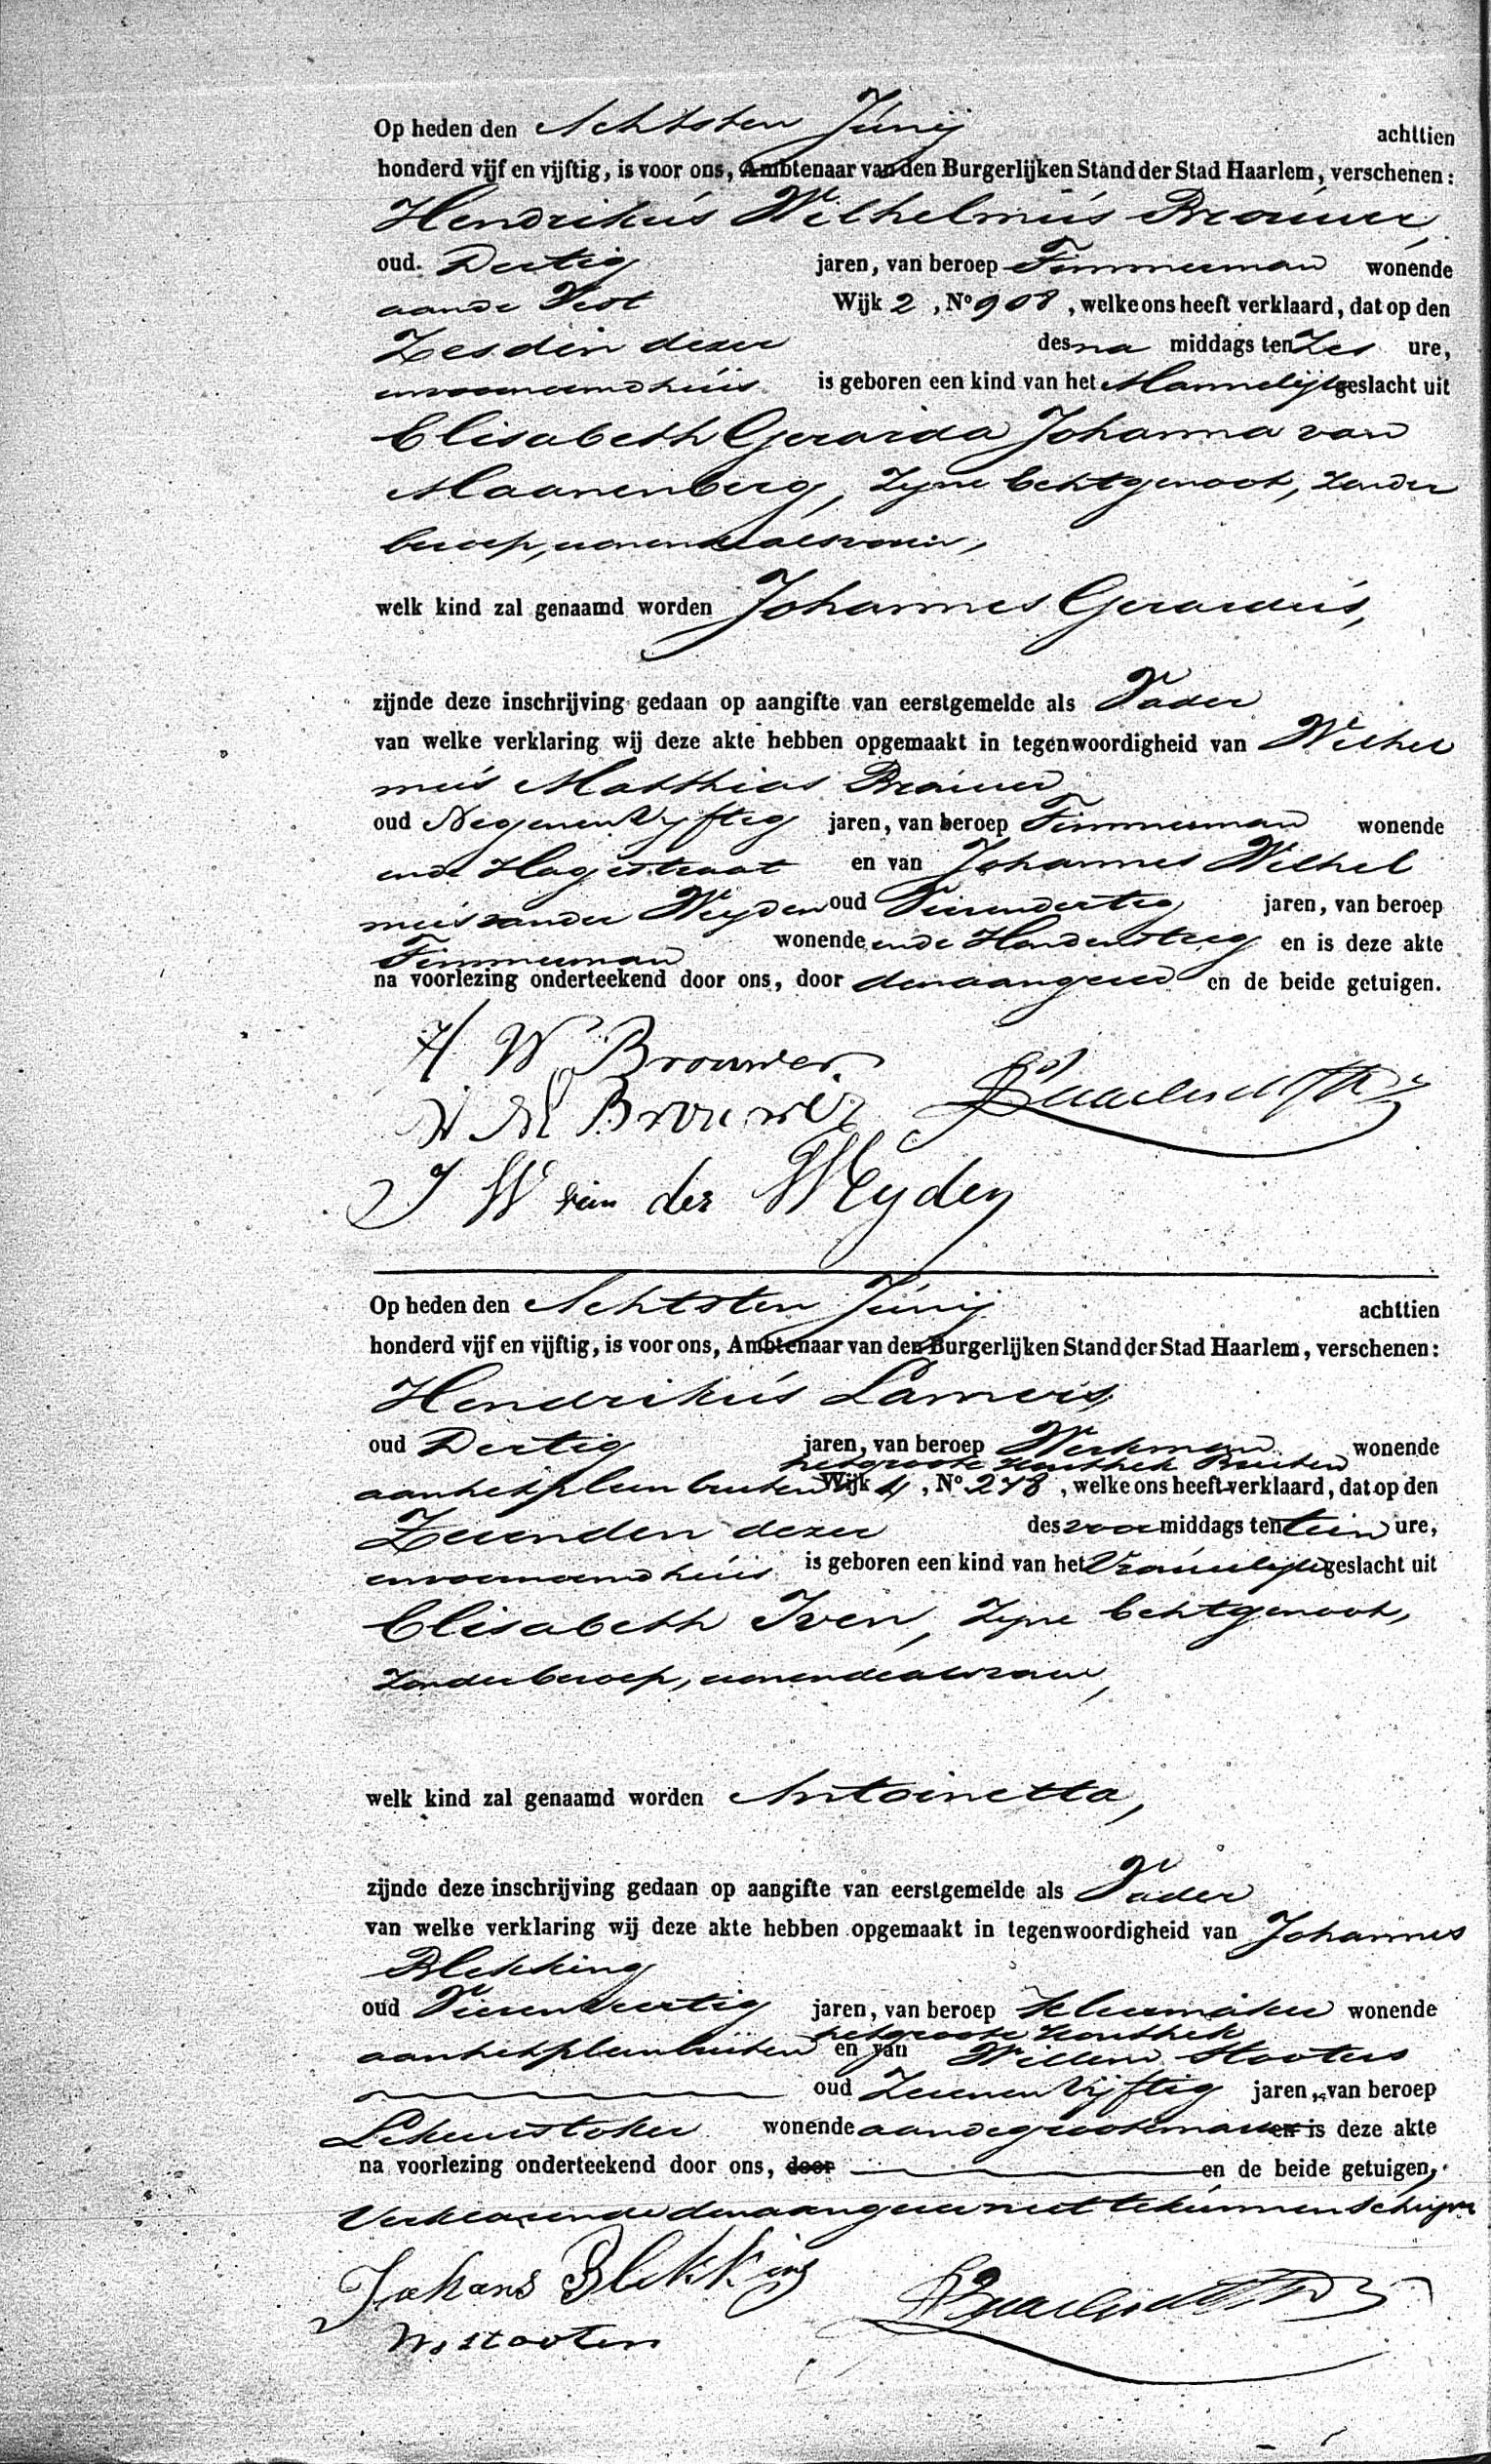 Op heden den Achtsten Junij achttien
honderd vijf en vijftig, is voor ons, Ambtenaar van den Burgerlijken Stand der Stad Haarlem, verschenen:
Hendrikus Wilhelmus Brouwer,
oud Dertig jaren, van beroep Timmerman wonende
aande Vest Wijk 2, No 908, welke ons heeft verklaard, dat op den
Zesden dezer des na middags ten Zes ure,
in voornoemd huis is geboren een kind van het Mannelijk geslacht uit
Elisabeth Gerarda Johanna van
Maanenberg, Zyne Echtgenoot, Zonder
beroep, wonende als voren,
welk kind zal genaamd worden Johannes Gerardus,
zijnde deze inschrijving gedaan op aangifte van eerstgemelde als Vader
van welke verklaring wij deze akte hebben opgemaakt in tegenwoordigheid van Wilhel
mus Matthias Brouwer
oud Negenen Vyftig jaren, van beroep Timmerman wonende
inde Hagestraat en van Johannes Wilhel
mus vander Weyden oud Vierendertig jaren, van beroep
Timmerman wonende inde Hondensteeg en is deze akte
na voorlezing onderteekend door ons, door den aangever en de beide getuigen.
H W Brouwer
W M Brouwer
J W van der Weyden
Op heden den Achtsten Junij achttien
honderd vijf en vijftig, is voor ons, Ambtenaar van den Burgerlijken Stand der Stad Haarlem, verschenen:
Hendrikus Lamers,
oud Dertig jaren, van beroep Werkman wonende
het groote Houthek Buiten
aanhetplein buiten Wijk 4, No 278, welke ons heeft verklaard, dat op den
Zevenden dezer des voor middags ten tien ure,
in voornoemd huis is geboren een kind van het Vrouwelijk geslacht uit
Elisabeth Iven, Zyne Echtgenoot,
Zonder beroep, wonende als voren,
welk kind zal genaamd worden Antoinetta,
zijnde deze inschrijving gedaan op aangifte van eerstgemelde als Vader
van welke verklaring wij deze akte hebben opgemaakt in tegenwoordigheid van Johannes
Blekking
oud Vierenveertig jaren, van beroep Kleermaker wonende
het groote Houthek
aanhetpleinbuiten en van Willem Stooters
oud Zevenen Vijftig jaren, van beroep
wonende aandegrootemarkt en is deze akte
na voorlezing onderteekend door ons, door en de beide getuigen,
Verklarende den aangever niet te kunnen schrijven
Johans Blekking
W. Stooten